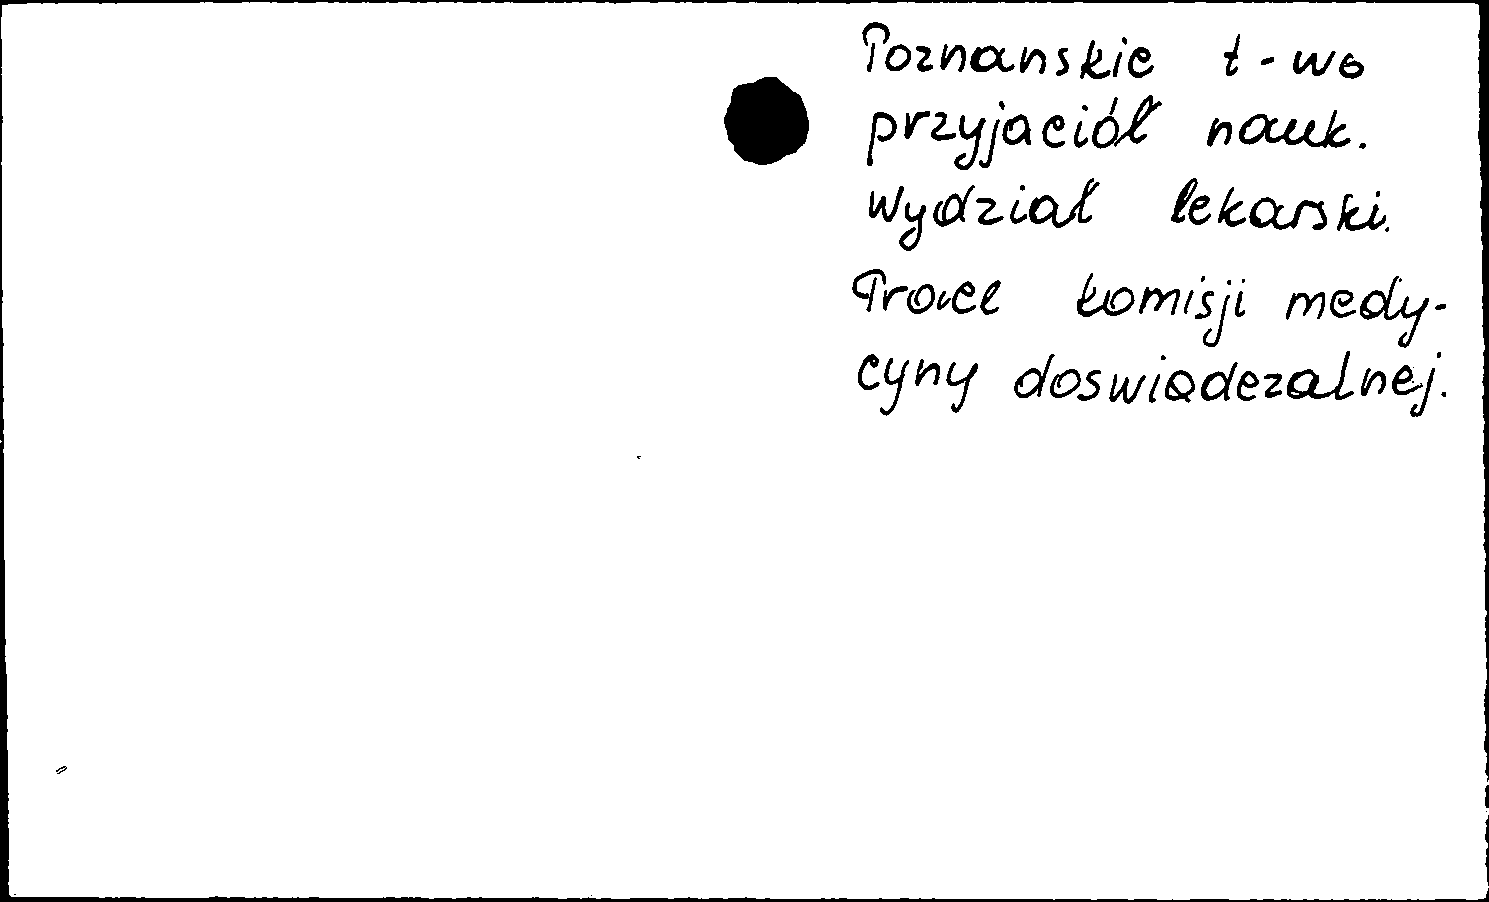 Poznanskie t-wo
przyjaciół nauk.
Wydział lekarski.
Prace komisji medy-
cyny doswiadczalnej.